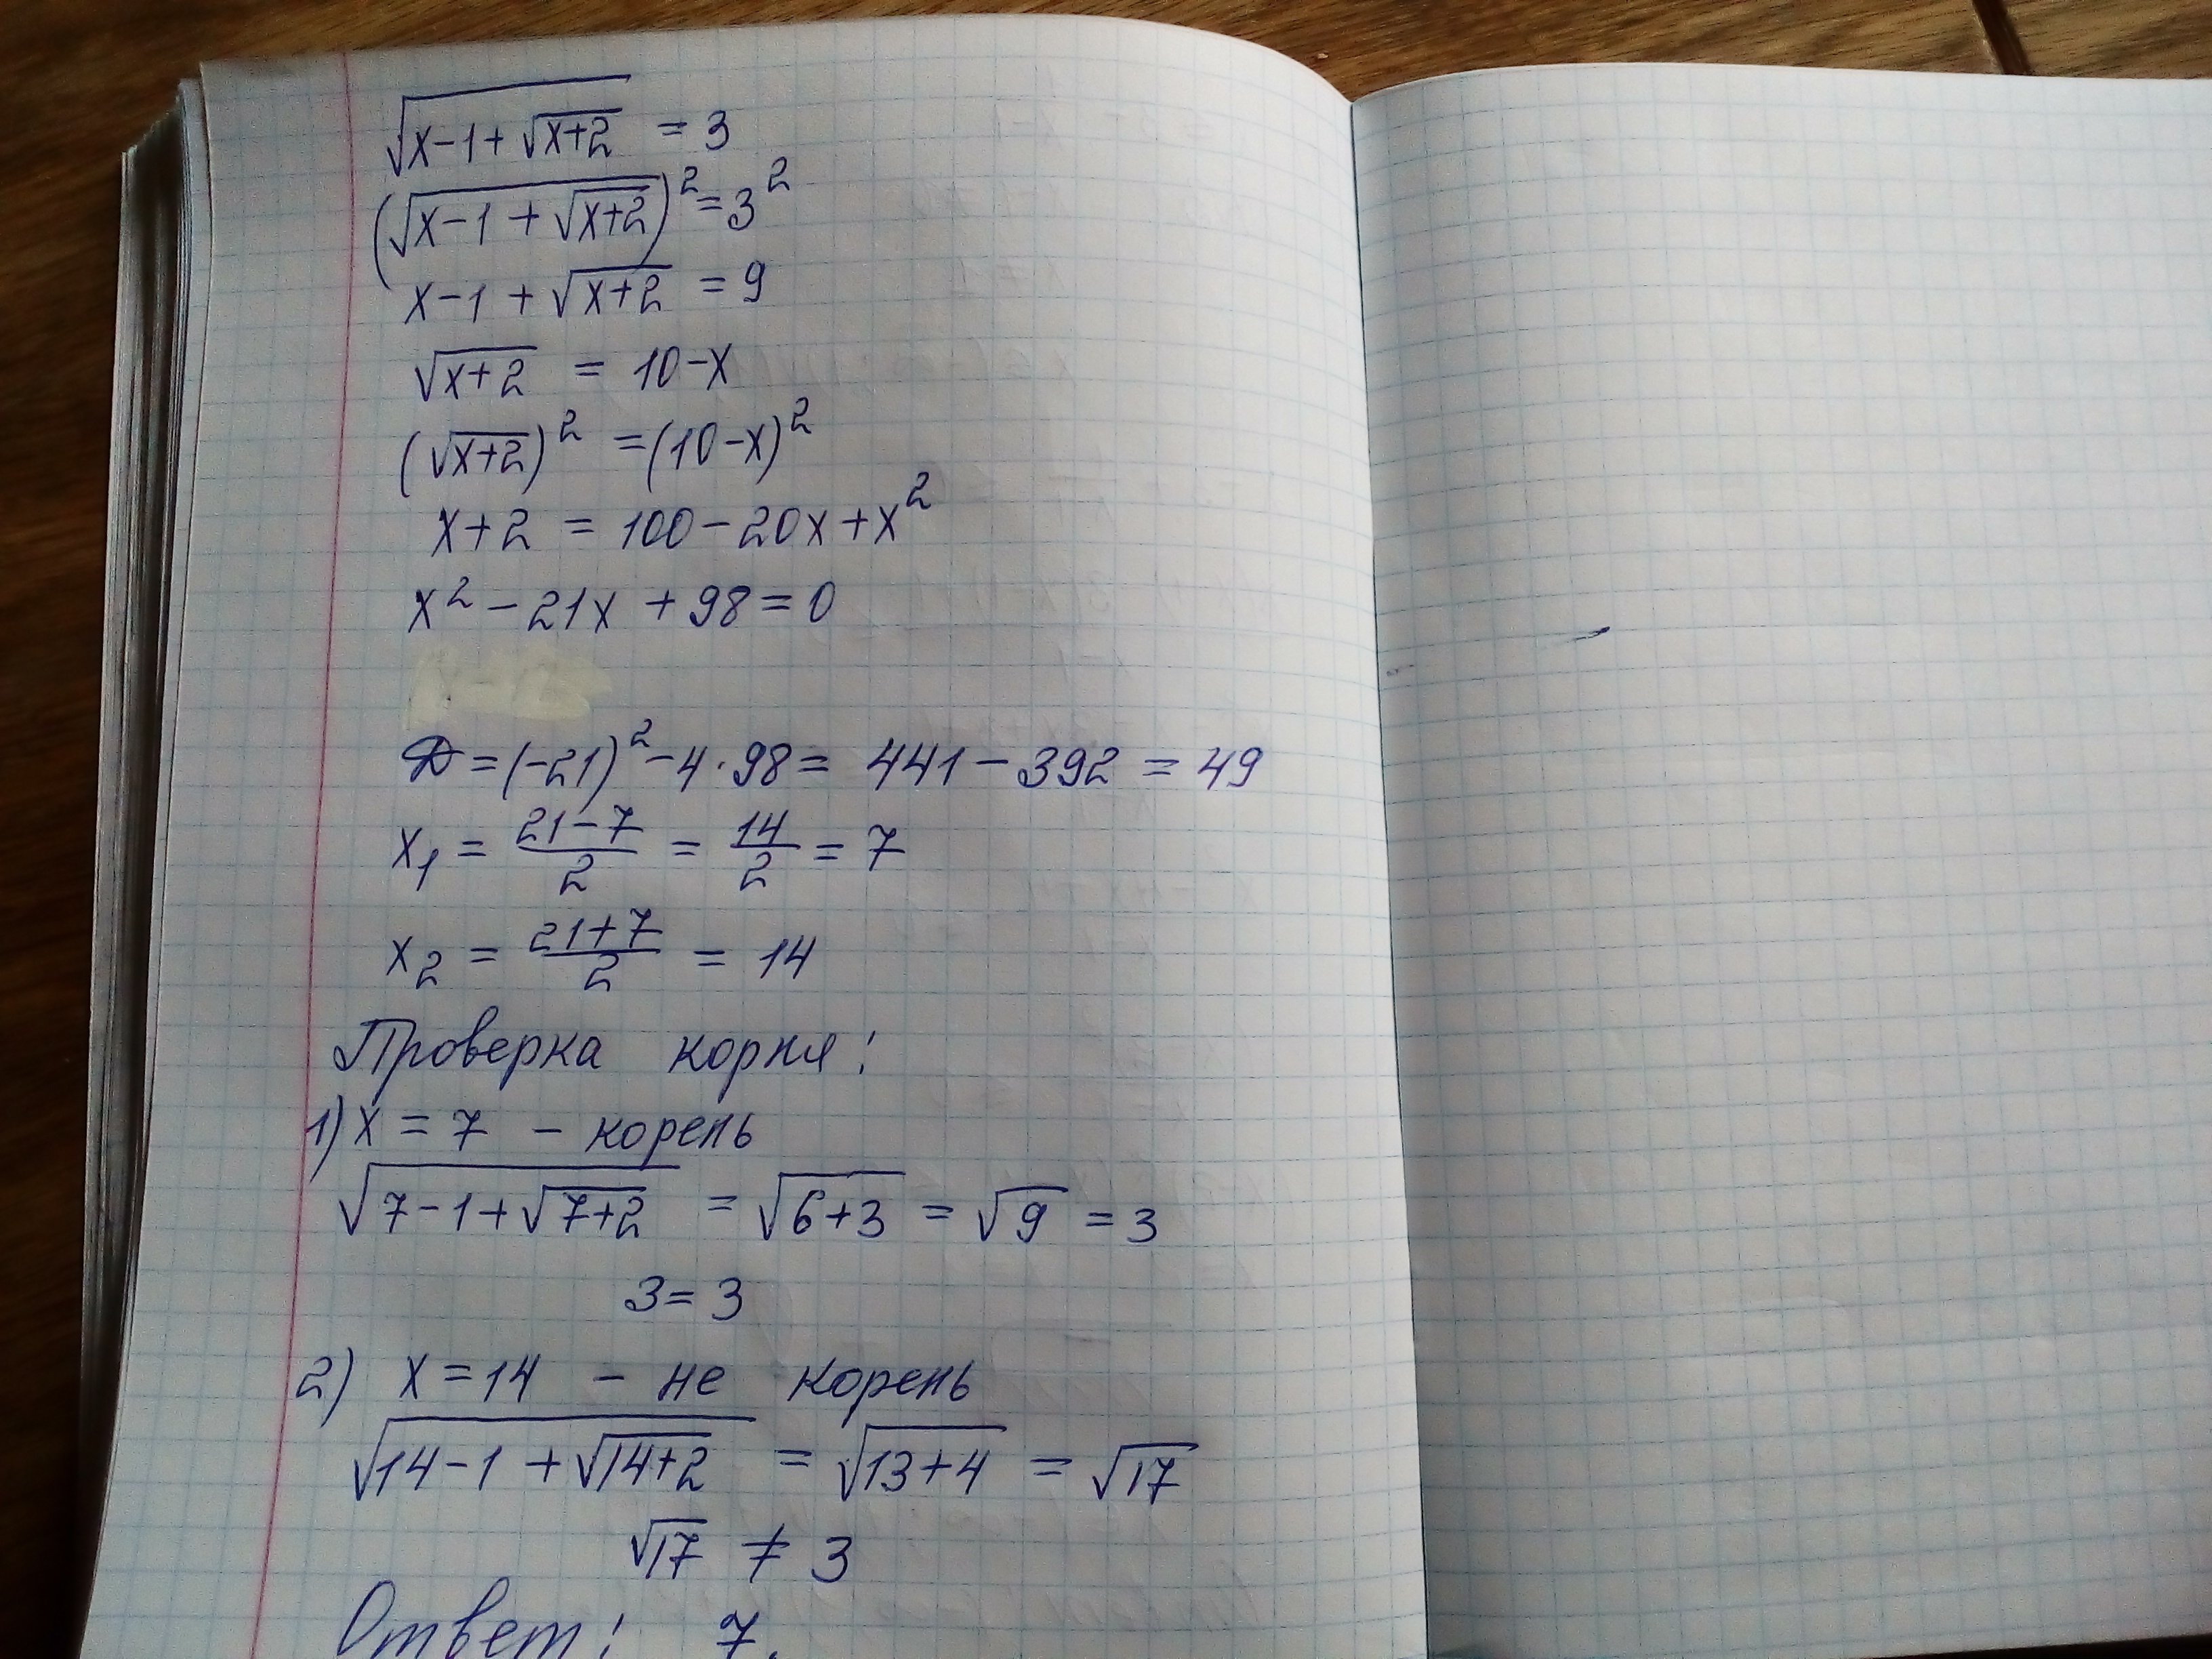 √(x-1+√(x+2)) = 3
(√(x-1+√(x+2)))² = 3²
x-1+√(x+2) = 9
√(x+2) = 10-x
(√(x+2))² = (10-x)²
x+2 = 100-20x+x²
x²-21x+98=0
D=(-21)²-4·98= 441-392 = 49
x₁ = (21-7)/2 = 14/2 = 7
x₂ = (21+7)/2 = 14
Проверка корня:
1) x = 7 - корень
√(7-1+√(7+2)) = √(6+3) = √9 = 3
3=3
2) x=14 - не корень
√(14-1+√(14+2)) = √(13+4) = √17
√17 ≠ 3
Ответ: 7.